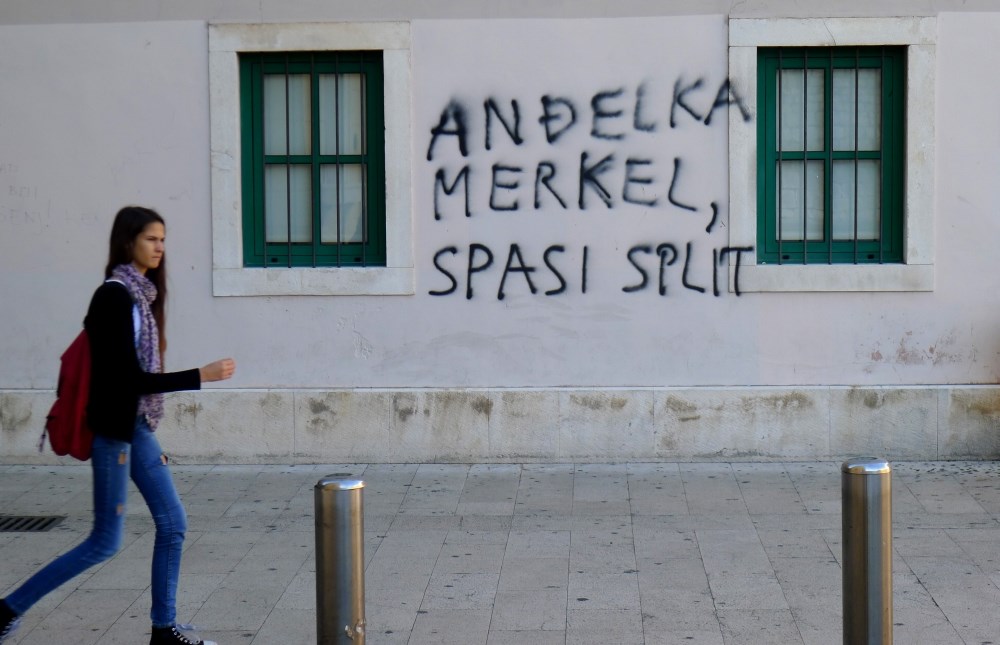 ANĐELKA
MERKEL,
SPASI SPLIT